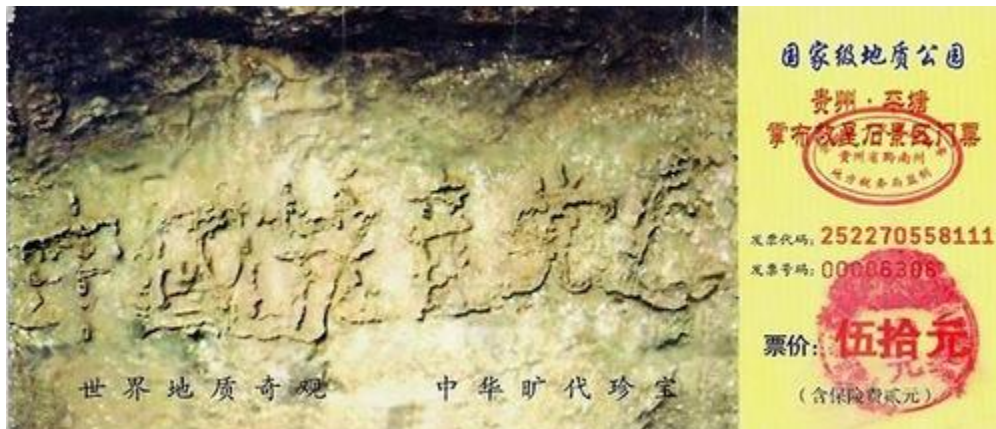 中国共产党亡
世界地质奇观 中华旷代珍宝
国家级地质公园
贵州·平塘
掌布救星石景区门票
贵州省黔南州
地方税务局监制
发票代码:252270558111
发票号码:00006306
票价:伍拾元
(含保险费贰元)